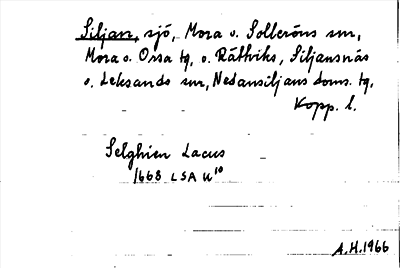 Siljan, sjö, Mora o. Solleröns snr,
Mora o. Orsa tg, o. Rättviks, Siljansnäs
o. Leksands snr, Nedansiljans doms. tg,
Kopp. l.
Selghien Lacus
1668 LSA U¹⁰
A.H. 1966